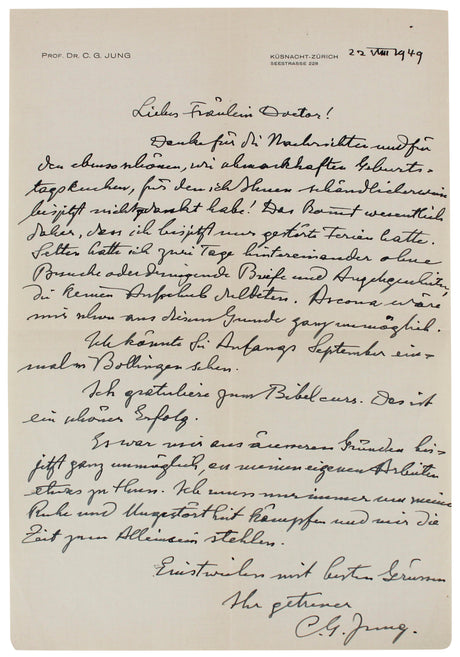 PROF. DR. C. G. JUNG
KÜSNACHT-ZÜRICH
SEESTRASSE 228
22 VIII 1949
Liebes Fräulein Doctor!
Danke für die Nachrichten und für
den ebenso schönen, wie schmackhaften Geburts-
tagskuchen, für den ich Ihnen schändlicherweise
bis jetzt nicht gedankt habe! Das kommt wesentlich
daher, dass ich bis jetzt nur gestörte Ferien hatte.
Selten hatte ich zwei Tage hintereinander ohne
Besuche oder dringende Briefe und Angelegenheiten,
die keinen Aufschub duldeten. Ascona wäre
mir schon aus diesem Grunde ganz unmöglich.
Ich könnte Sie Anfangs September ein-
mal in Bollingen sehen.
Ich gratuliere zum Bibelcurs. Das ist
ein schöner Erfolg.
Es war mir aus äusseren Gründen bis
jetzt ganz unmöglich, an meinen eigenen Arbeiten
etwas zu thun. Ich muss nur immer um meine
Ruhe und Ungestörtheit kämpfen und mir die
Zeit zum Alleinsein stehlen.
Einstweilen mit besten Grüssen
Ihr getreuer
C. G. Jung.